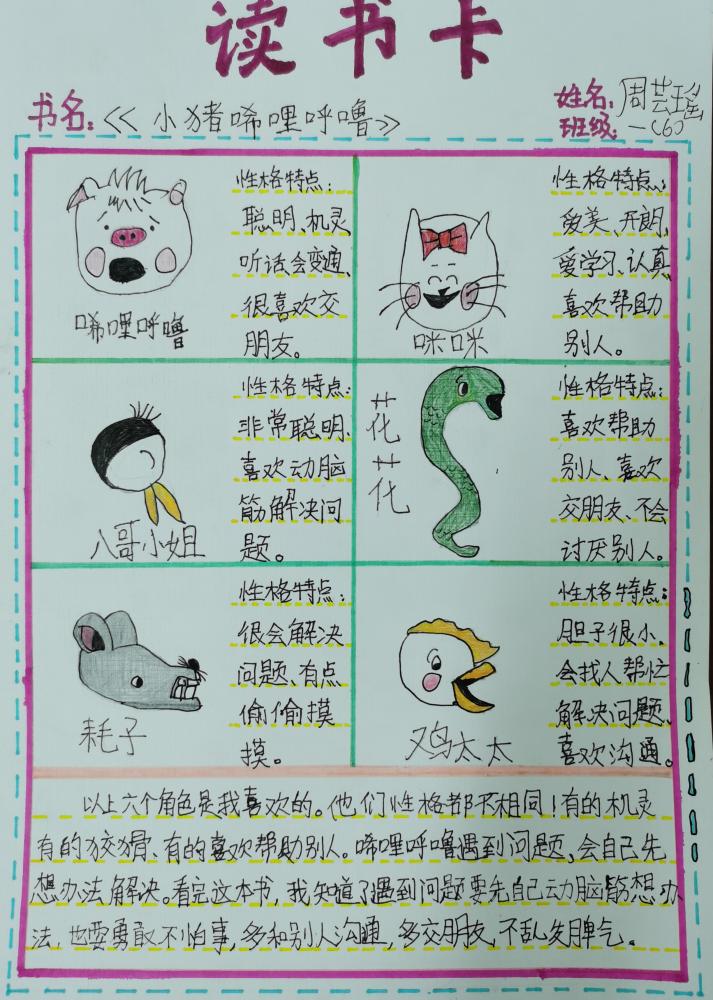 读书卡
书名：《小猪唏哩呼噜》
姓名：周芸瑶
班级：一(6)
性格特点：
聪明、机灵、
听话会变通、
很喜欢交
朋友。
唏哩呼噜
性格特点：
爱美、开朗、
爱学习、认真、
喜欢帮助
别人。
咪咪
性格特点：
非常聪明、
喜欢动脑
筋解决问
题。
八哥小姐
花花
性格特点：
喜欢帮助
别人、喜欢
交朋友、不会
讨厌别人。
性格特点：
很会解决
问题、有点
偷偷摸
摸。
耗子
性格特点：
胆子很小、
会找人帮忙
解决问题、
喜欢沟通。
鸡太太
以上六个角色是我喜欢的。他们性格都不相同！有的机灵
有的狡猾、有的喜欢帮助别人。唏哩呼噜遇到问题，会自己先
想办法解决。看完这本书，我知道了遇到问题要先自己动脑筋想办
法，也要勇敢不怕事，多和别人沟通，多交朋友，不乱发脾气。